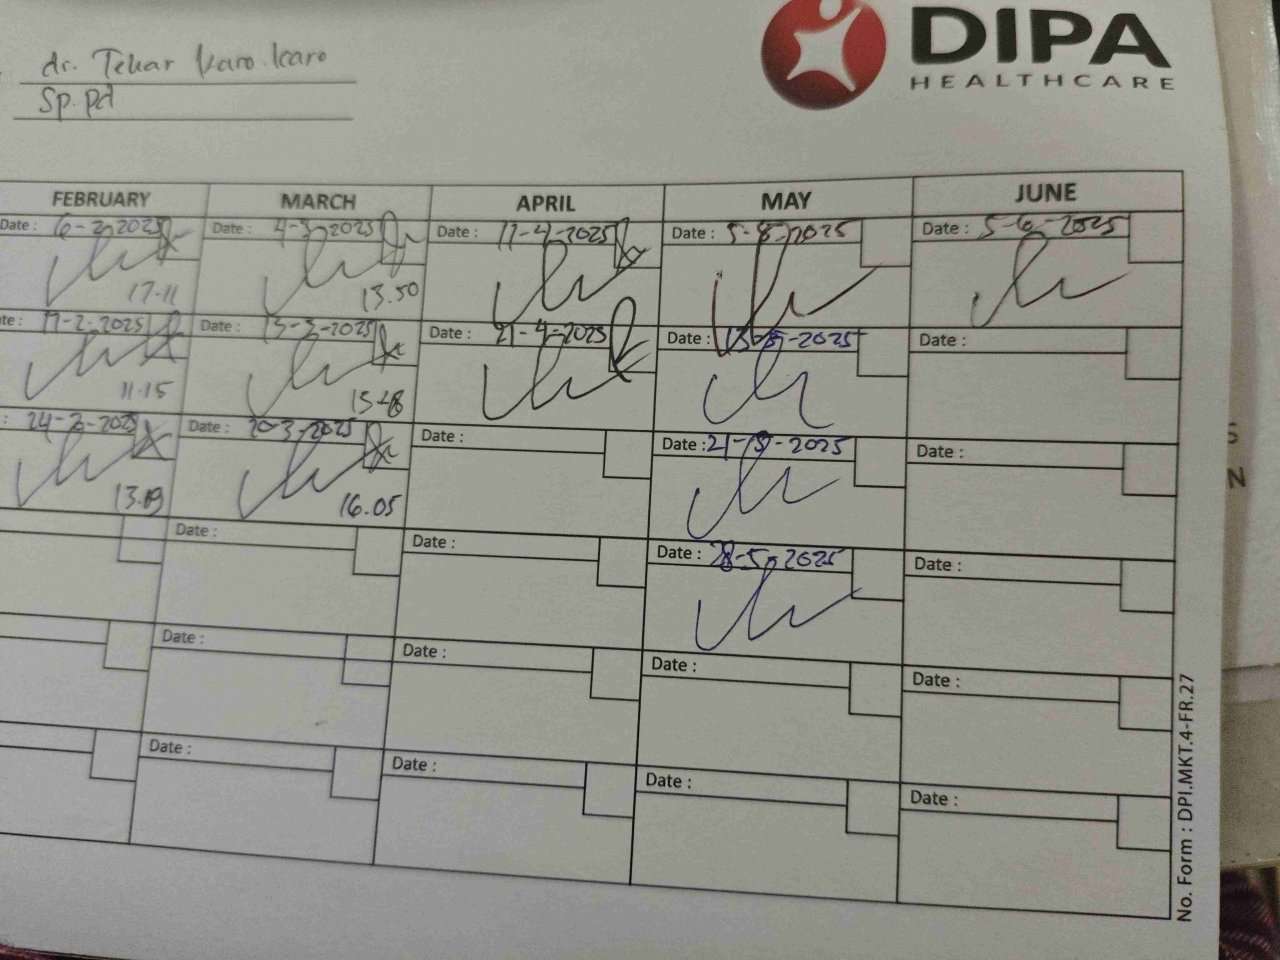 dr. Tekar Karo.karo
Sp.pd
DIPA
HEALTHCARE
FEBRUARY MARCH APRIL MAY JUNE
Date : 6-2-2025 Date : 4-3-2025 Date : 11-4-2025 Date : 5-8-2025 Date : 5-6-2025
17-11 13.50
te: 17-2-2025 Date : 13-3-2025 Date : 21-4-2025 Date : 13-5-2025 Date :
11.15 15
: 24-2-2025 Date : 20-3-2025 Date : Date : 21-5-2025 Date :
13.09 16.05
Date : Date : Date : 28-5-2025 Date :
Date : Date : Date : Date :
Date : Date : Date : Date :
No. Form : DPI.MKT.4-FR.27
S
N